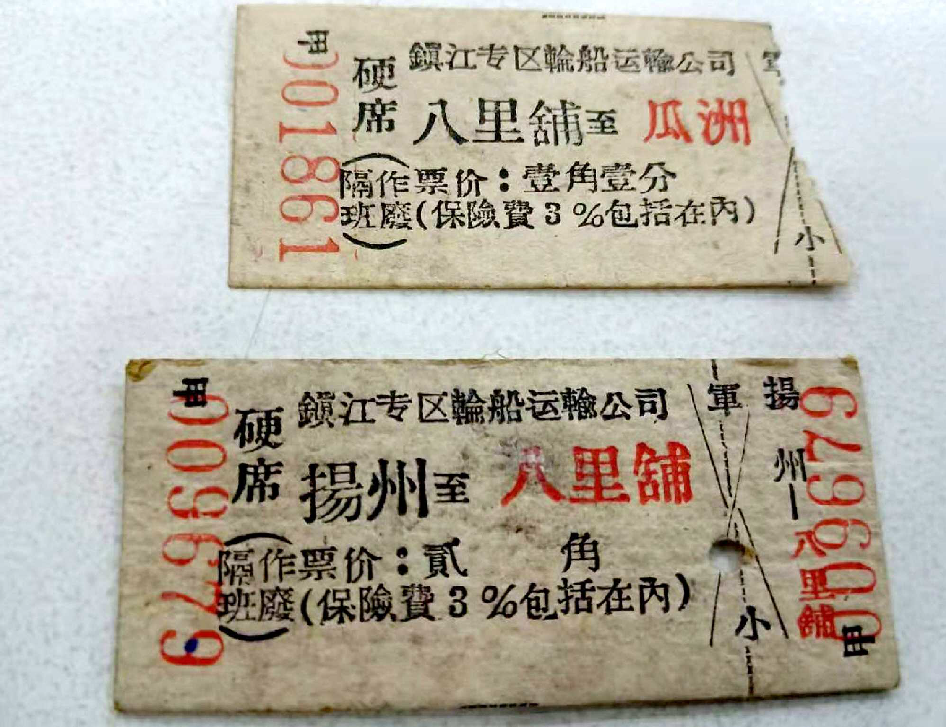 甲 001861
硬席
鎮江专区輪船运輸公司
八里舖至 瓜洲
票价：壹角壹分
(保險費3%包括在內)
(隔班作廢)
軍
小
甲 009679
硬席
鎮江专区輪船运輸公司
揚州至 八里舖
票价：貳 角
(保險費3%包括在內)
(隔班作廢)
軍
小
揚州—八里舖
甲 009679